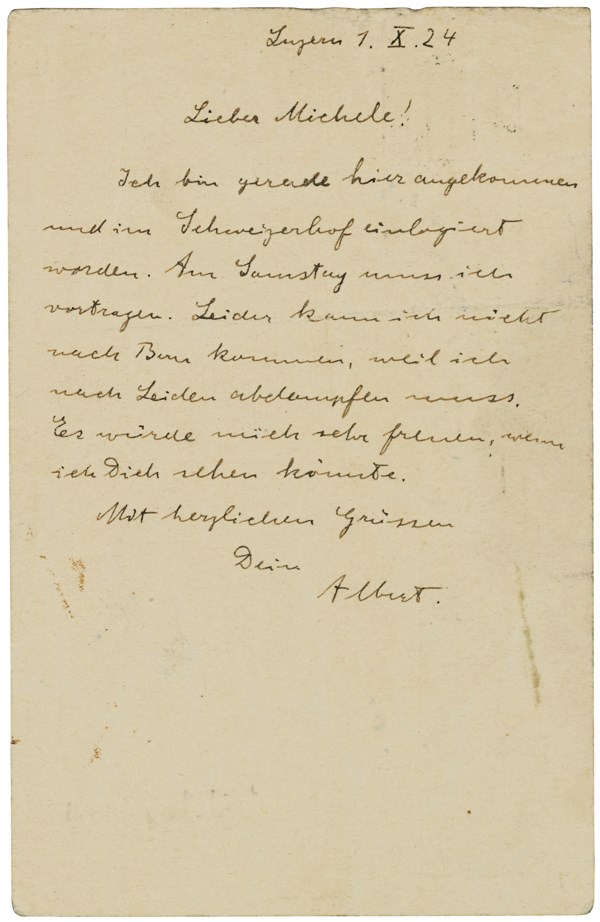 Luzern 1. X. 24
Lieber Michele!
Ich bin gerade hier angekommen
und im Schweizerhof einlogiert
worden. Am Samstag muss ich
vortragen. Leider kann ich nicht
nach Bern kommen, weil ich
nach Leiden abdampfen muss.
Es würde mich sehr freuen, wenn
ich Dich sehen könnte.
Mit herzlichen Grüssen
Dein
Albert.